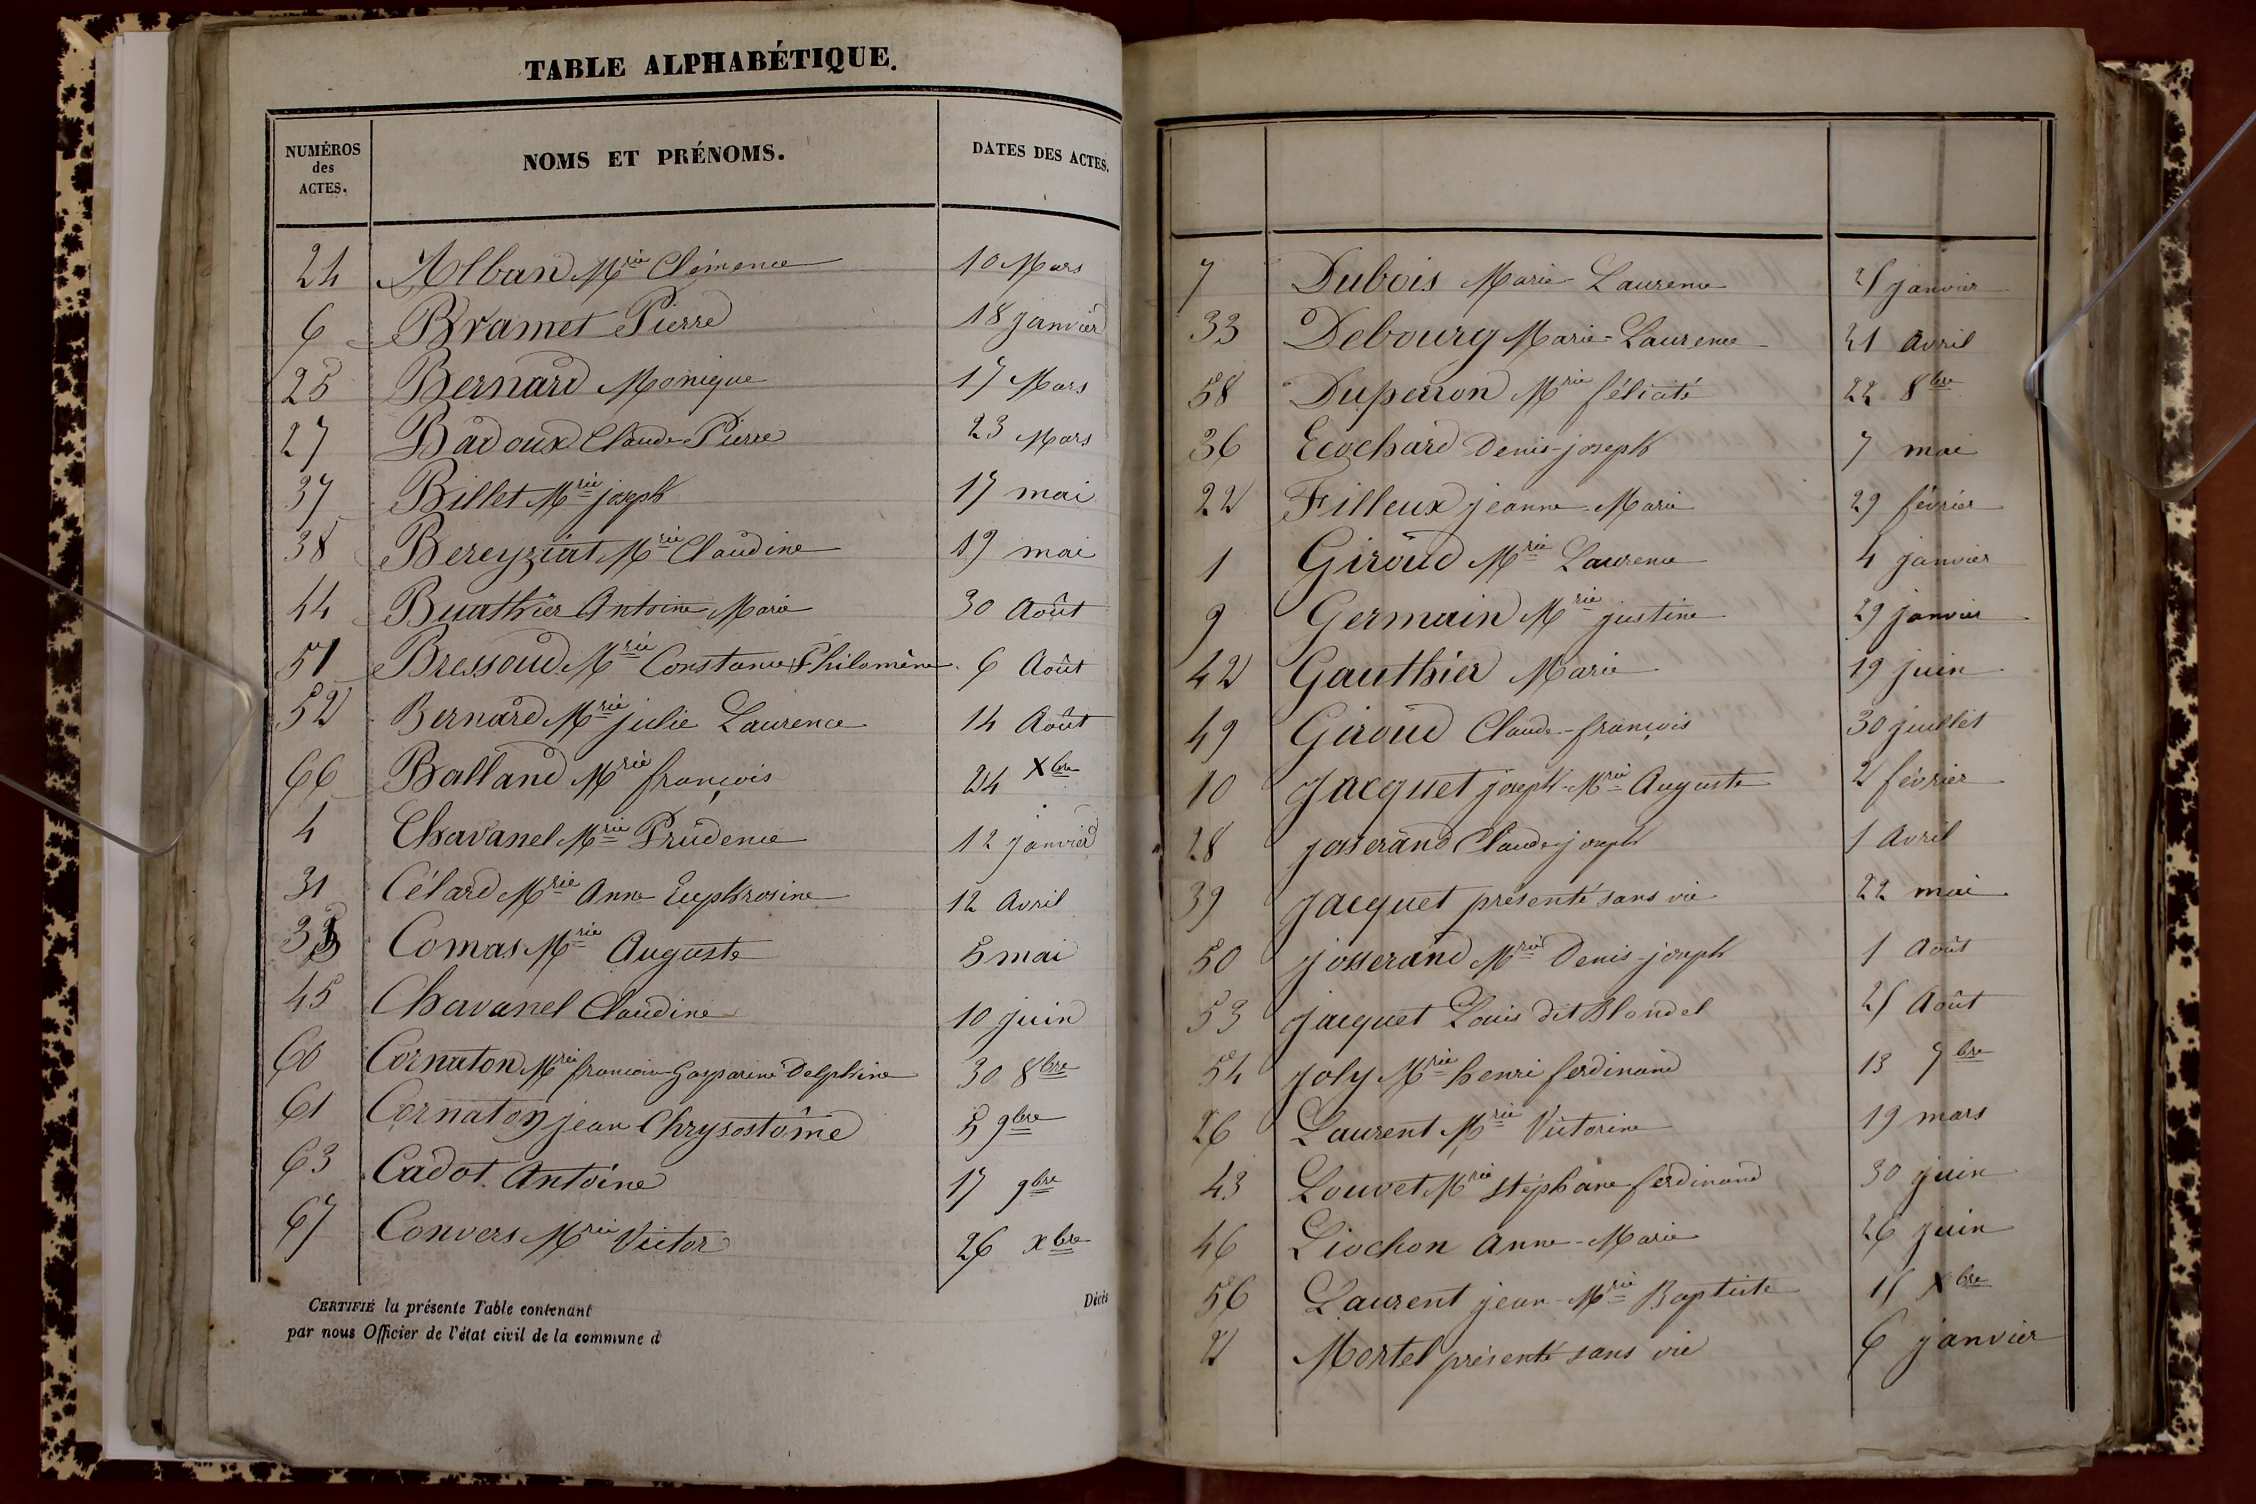 TABLE ALPHABÉTIQUE.
NUMÉROS des ACTES. NOMS ET PRÉNOMS. DATES DES ACTES.
24 Alban Mrie Clémence 10 Mars
6 Bramet Pierre 18 janvier
25 Bernard Monique 17 Mars
27 Badoux Claude Pierre 23 Mars
37 Billet Mrie joseph 17 mai
38 Bereyziat Mrie Claudine 19 mai
44 Buathier Antoine Marie 30 Août
51 Bressoud Mrie Constance Philomène 6 Août
52 Bernard Mrie julie Laurence 14 Août
66 Balland Mrie françois 24 Xbre
4 Chavanel Mrie Prudence 12 janvier
31 Célard Mrie Anne Euphrosine 12 Avril
Comas Mrie Auguste 5 mai
45 Chavanel Claudine 10 juin
60 Cornaton Mrie Gasparine Delphine 30 8bre
61 Cornaton jean Chrysostôme 5 9bre
63 Cadot Antoine 17 9bre
67 Convers Mrie Victor 26 xbre
CERTIFIÉ la présente Table contenant
par nous Officier de l'état civil de la commune d
7 Dubois Marie Laurence janvier
33 Debourg Marie-Laurence 21 Avril
58 Duperron Mrie félicité 22 8bre
36 Ecochard Denis-joseph 7 mai
22 Filleux jeanne-Marie 29 février
1 Giroud Mrie Laurence 4 janvier
9 Germain Mrie justine 29 janvier
42 Gauthier Marie 19 juin
49 Giroud Claude-françois 30 juillet
10 Jacquet joseph-Mrie Auguste 2 février
28 josserand Claude joseph 1 Avril
39 Jacquet présenté sans vie 22 mai
50 josserand Mrie Denis-joseph 1 Août
53 jacquet Louis dit Blondel Août
54 Joly Mrie henri ferdinand 13 7bre
26 Laurent Mrie Victorine 19 mars
43 Louvet Mrie stéphane ferdinand 30 juin
46 Liochon Anne-Marie 26 juin
56 Laurent jean-Mrie Baptiste Xbre
2 Mortel présenté sans vie 6 janvier